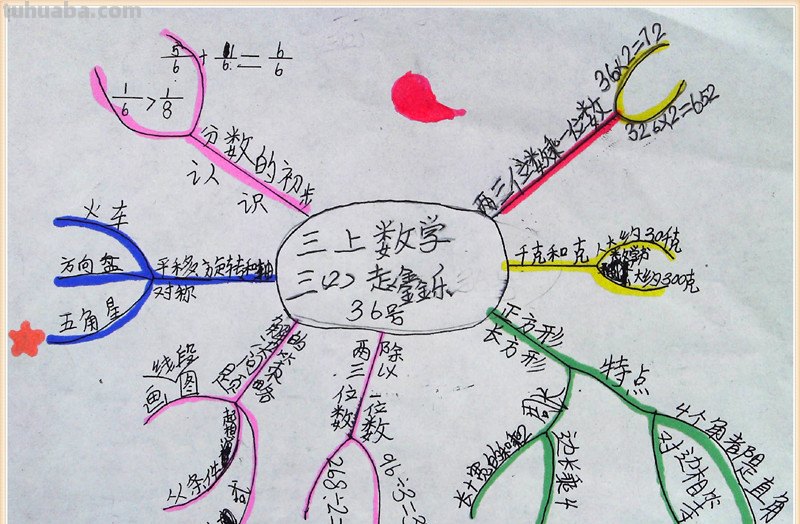 tuhuaba.com
5/6 + 1/6 = 6/6
1/6 > 1/8
分数的初步
认识
36×2=72
326×2=652
两三位数乘一位数
三上数学
三(2) 走鑫乐
36号
千克和克
人大约30千克
数学书
大约300克
火车
方向盘
五角星
平移
旋转和轴
对称
正方形
长方形
特点
4个角都是直角
对边相
周长
边长乘4
长+宽的和乘
除以
两三位数
一位数
96÷3=3
268÷2=
解决
策略
线段
画图
从条件